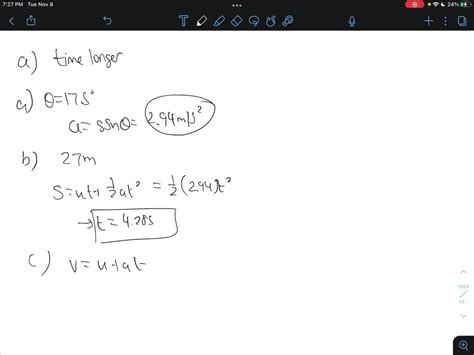 7:27 PM Tue Nov 8
24%
a) time longer
a) θ=17.5°
a= gsinθ= 2.94m/s²
b) 27m
S=ut+½at² = ½(2.94)t²
→ t= 4.28s
c) v= u+at